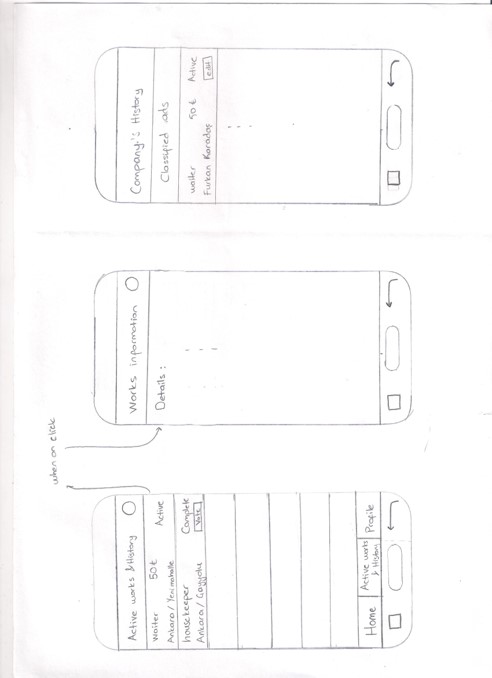 when on click
Active works & History
Waiter 50₺ Active
Ankara / Yenimahalle
housekeeper Complete
Ankara / Çayyolu Vote
Home Active works & History Profile
Works information
Details :
Company's History
Classified ads
waiter 50₺ Active
Furkan Karadaş edit